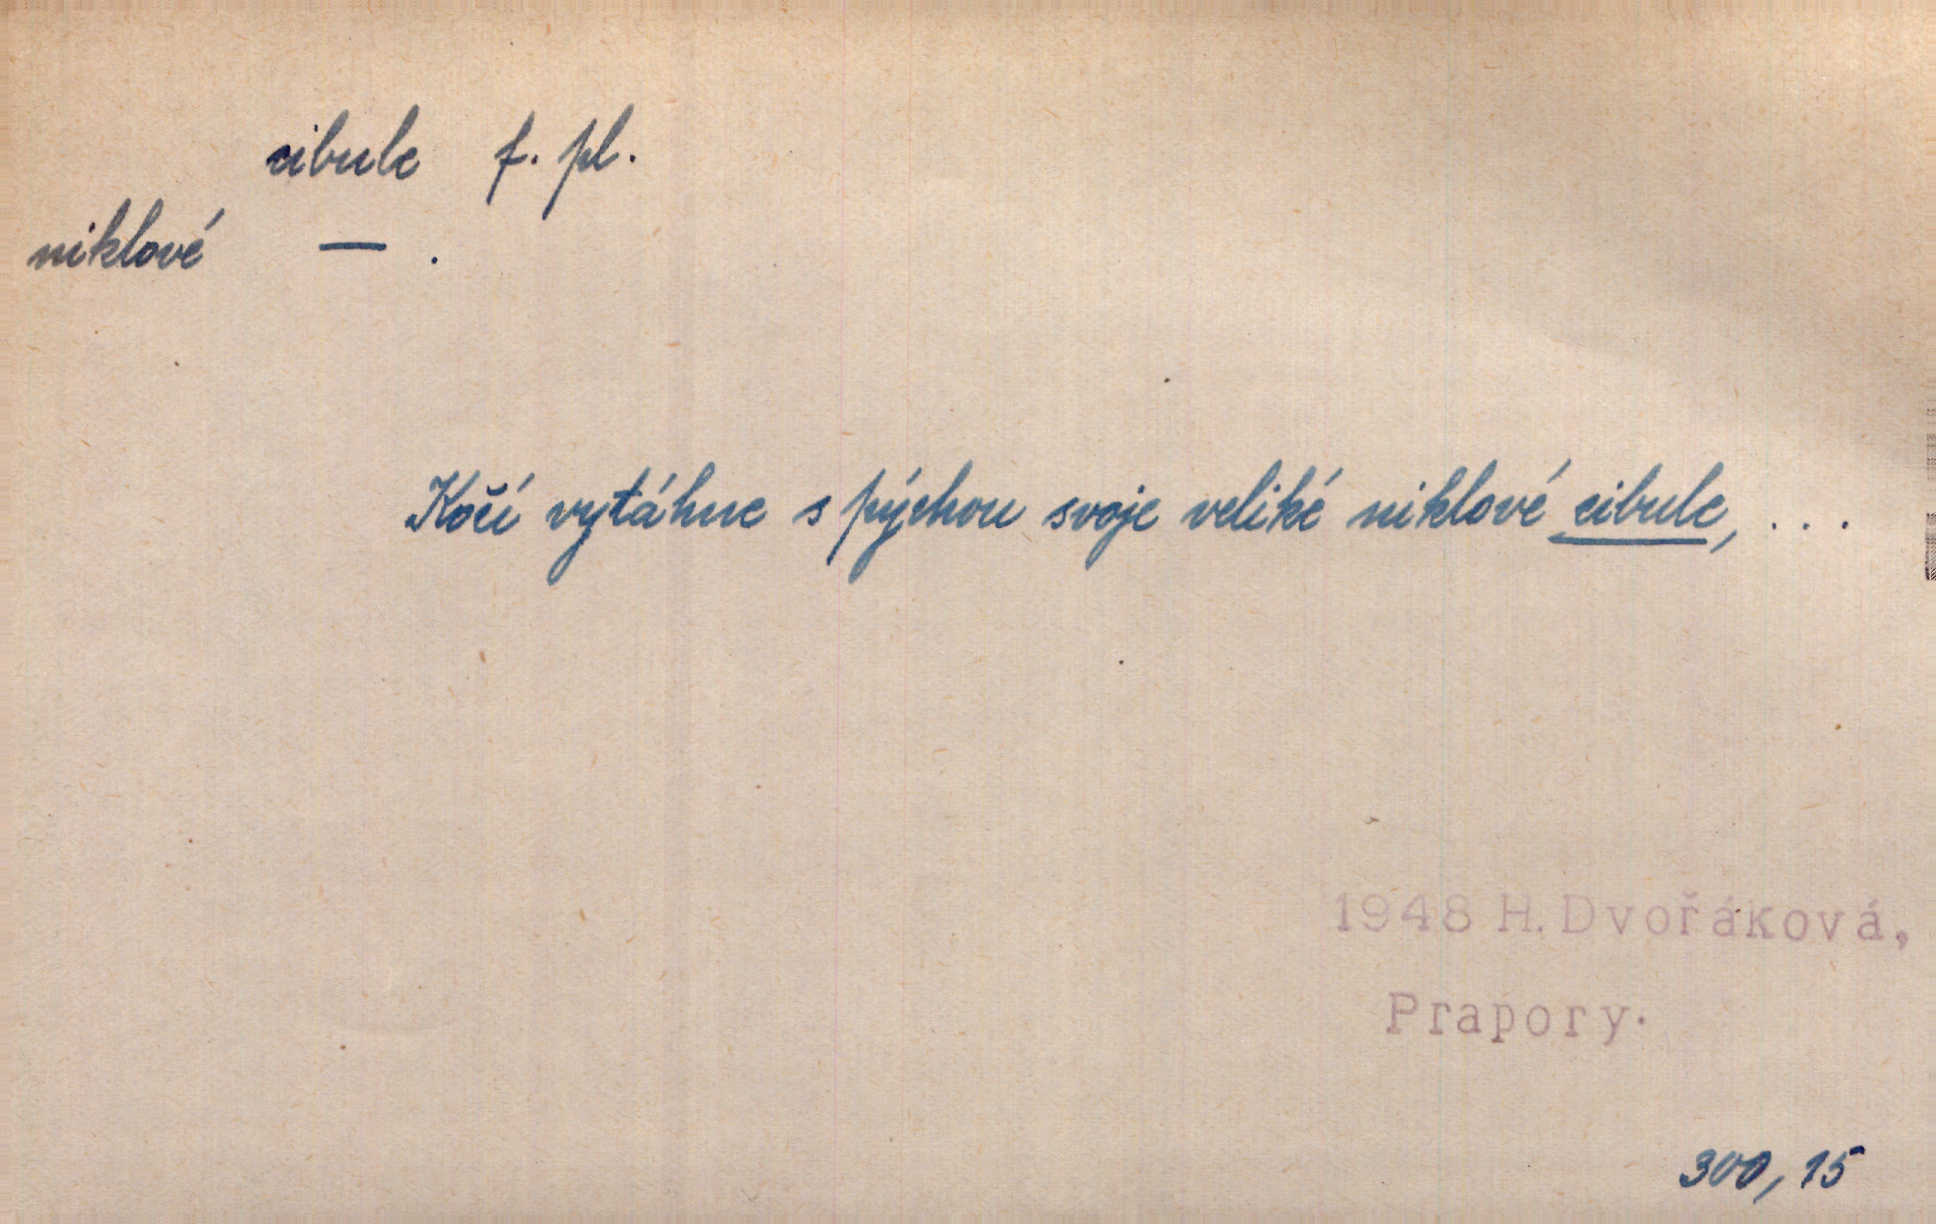 cibule f. pl.
niklové — .
Kočí vytáhne s pýchou svoje veliké niklové cibule, . . .
1948 H. Dvořáková,
Prapory.
300, 15